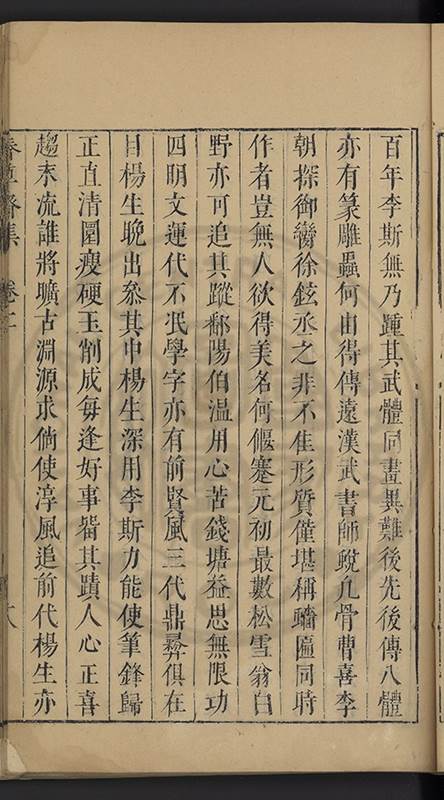 百年李斯無乃踵其武體同畫異難後先後傳八體
亦有篆雕蟲何由得傳遠漢武書師蛻凡骨曹喜李
朝探御臠徐鉉丞之非不隹形質僅堪稱匾同時
作者豈無人欲得美名何偃蹇元初最數松雪翁白
野亦可追其蹤鄱陽伯温用心苦錢塘益思無限功
四明文運代不泯學字亦有前賢風三代鼎彞俱在
目楊生晚出叅其中楊生深用李斯力能使筆鋒歸
正直清圓瘦硬玉削成毎逢好事㽞其蹟人心正喜
趨末流誰將曠古淵源求倘使淳風追前代楊生亦
春草齋集 卷二 六